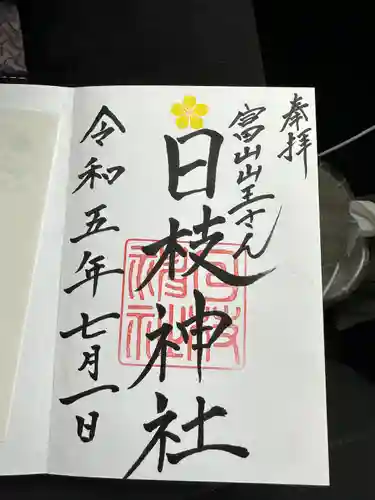 奉拝
富山山王さん
日枝神社
日枝神社
令和五年七月一日